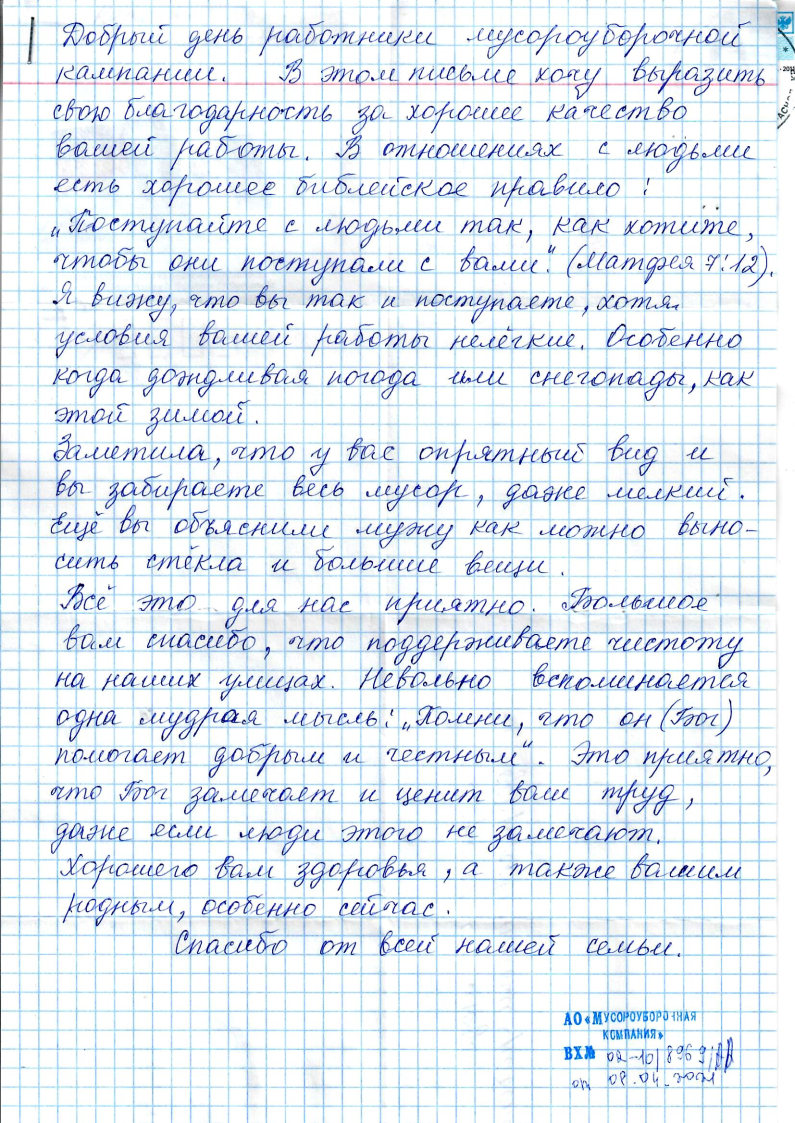 Добрый день работники мусороуборочной
кампании. В этом письме хочу выразить
свою благодарность за хорошее качество
вашей работы. В отношениях с людьми
есть хорошее библейское правило:
„Поступайте с людьми так, как хотите,
чтобы они поступали с вами“. (Матфея 7:12).
Я вижу, что вы так и поступаете, хотя
условия вашей работы нелёгкие. Особенно
когда дождливая погода или снегопады, как
этой зимой.
Заметила, что у вас опрятный вид и
вы забираете весь мусор, даже мелкий.
Ещё вы объяснили мужу как можно выно-
сить стёкла и большие вещи.
Всё это для нас приятно. Большое
вам спасибо, что поддерживаете чистоту
на наших улицах. Невольно вспоминается
одна мудрая мысль: „Помни, что он (Бог)
помогает добрым и честным“. Это приятно,
что Бог замечает и ценит ваш труд,
даже если люди этого не замечают.
Хорошего вам здоровья, а также вашим
родным, особенно сейчас.
Спасибо от всей нашей семьи.
АО «МУСОРОУБОРОЧНАЯ
КОМПАНИЯ»
ВХ№